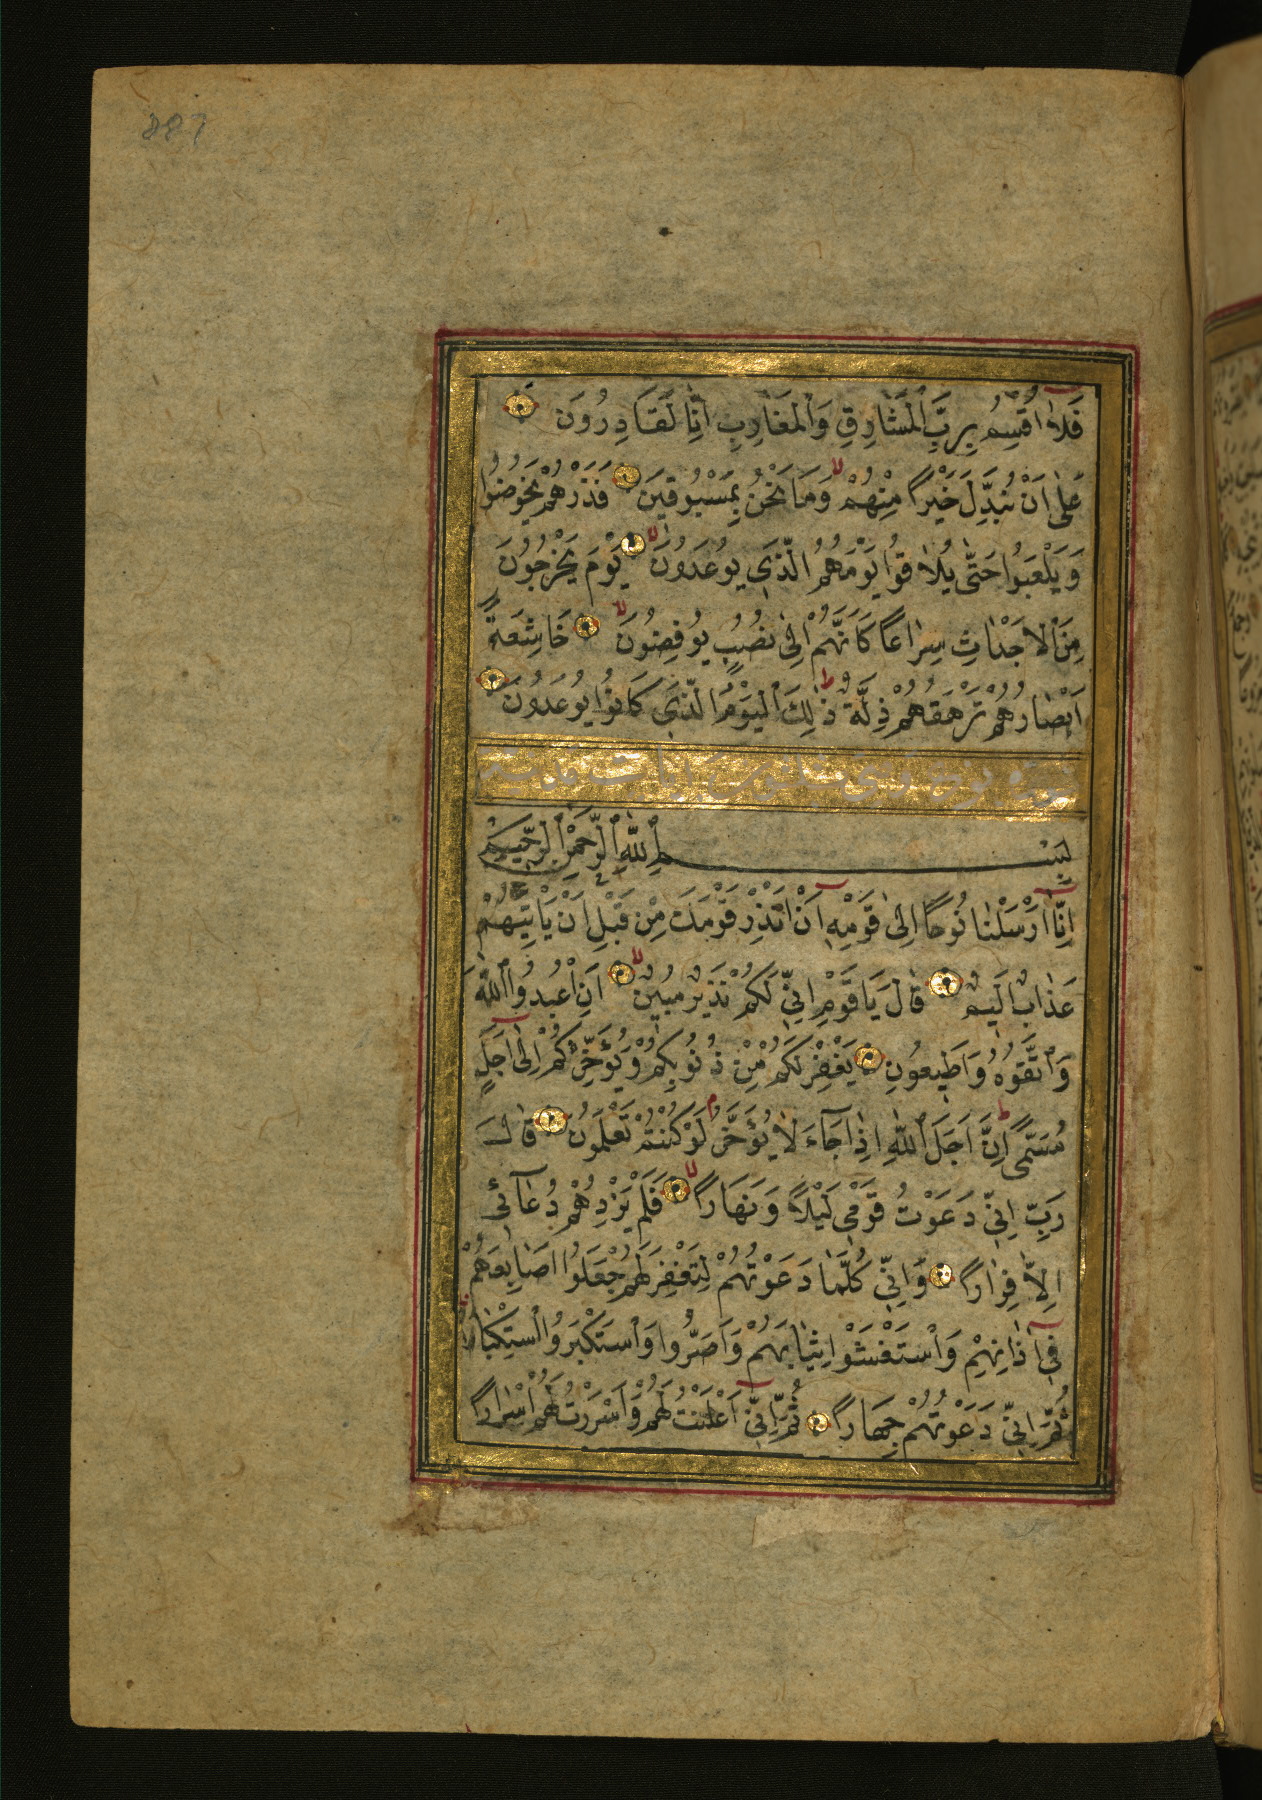 887
فَلَا اُقْسِمُ بِرَبِّ الْمَشَارِقِ وَالْمَغَارِبِ اِنَّا لَقَادِرُونَ
عَلٰى اَنْ نُبَدِّلَ خَيْرًا مِنْهُمْ وَمَا نَحْنُ بِمَسْبُوقِينَ فَذَرْهُمْ يَخُوضُوا
وَيَلْعَبُوا حَتّٰى يُلَاقُوا يَوْمَهُمُ الَّذِي يُوعَدُونَ يَوْمَ يَخْرُجُونَ
مِنَ الْاَجْدَاثِ سِرَاعًا كَاَنَّهُمْ اِلٰى نُصُبٍ يُوفِضُونَ خَاشِعَةً
اَبْصَارُهُمْ تَرْهَقُهُمْ ذِلَّةٌ ذٰلِكَ الْيَوْمُ الَّذِي كَانُوا يُوعَدُونَ
سورة نوح
بِسْمِ اللّٰهِ الرَّحْمٰنِ الرَّحِيمِ
اِنَّا اَرْسَلْنَا نُوحًا اِلٰى قَوْمِهِ اَنْ اَنْذِرْ قَوْمَكَ مِنْ قَبْلِ اَنْ يَاْتِيَهُمْ
عَذَابٌ اَلِيمٌ قَالَ يَا قَوْمِ اِنِّي لَكُمْ نَذِيرٌ مُبِينٌ اَنِ اعْبُدُوا اللّٰهَ
وَاتَّقُوهُ وَاَطِيعُونِ يَغْفِرْ لَكُمْ مِنْ ذُنُوبِكُمْ وَيُؤَخِّرْكُمْ اِلٰى اَجَلٍ
مُسَمًّى اِنَّ اَجَلَ اللّٰهِ اِذَا جَآءَ لَا يُؤَخَّرُ لَوْ كُنْتُمْ تَعْلَمُونَ قَالَ
رَبِّ اِنِّي دَعَوْتُ قَوْمِي لَيْلًا وَنَهَارًا فَلَمْ يَزِدْهُمْ دُعَآئِي
اِلَّا فِرَارًا وَاِنِّي كُلَّمَا دَعَوْتُهُمْ لِتَغْفِرَ لَهُمْ جَعَلُوا اَصَابِعَهُمْ
فِي آذَانِهِمْ وَاسْتَغْشَوْا ثِيَابَهُمْ وَاَصَرُّوا وَاسْتَكْبَرُوا اسْتِكْبَارًا
ثُمَّ اِنِّي دَعَوْتُهُمْ جِهَارًا ثُمَّ اِنِّي اَعْلَنْتُ لَهُمْ وَاَسْرَرْتُ لَهُمْ اِسْرَارًا